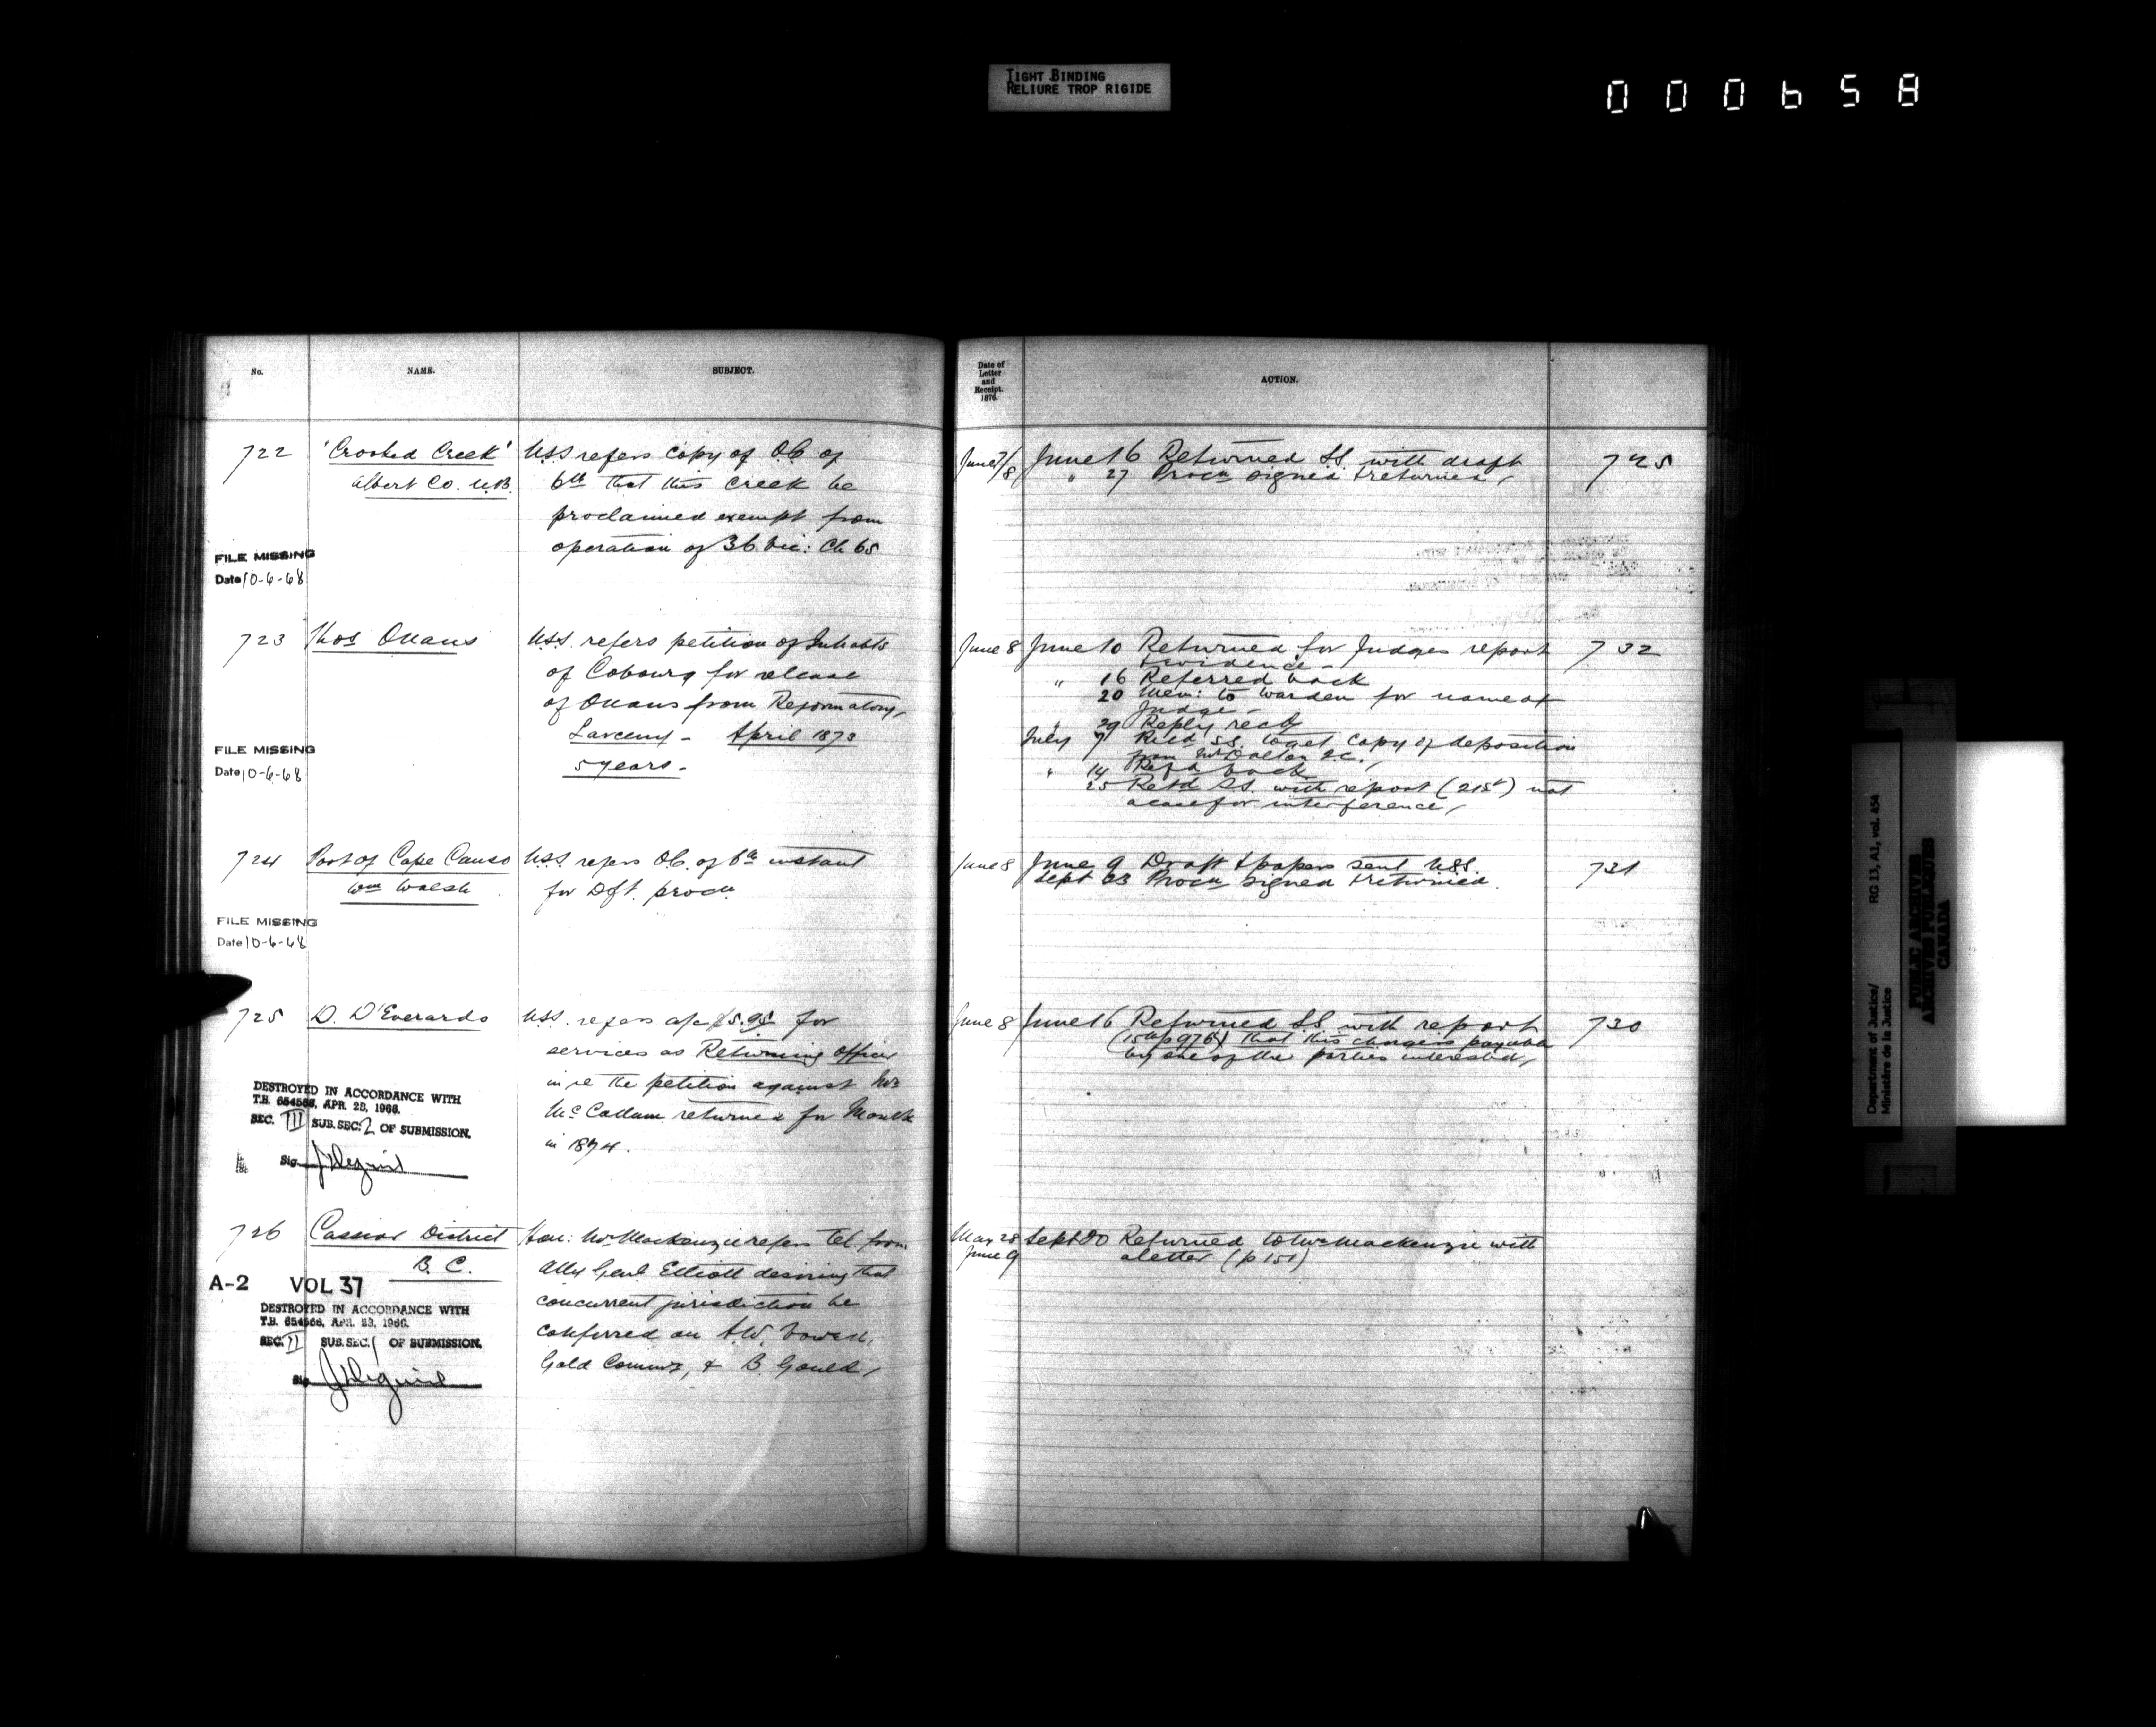 TIGHT BINDING
RELIURE TROP RIGIDE
000658
No. NAME. SUBJECT.
722 'Crooked Creek' USS refers copy of O.C. of
Albert Co. N.B. 6th that this creek be
proclaimed exempt from
operation of 36 Vic: Ch 65
FILE MISSING
Date 10-6-68
723 Thos USS. refers petition of Inhabts
of Cobourg for release
of from Reformatory,
Larceny - April 1873
5 years -
FILE MISSING
Date 10-6-68
724 Port of Cape Canso USS refers O.C. of 6th instant
Wm Walsh for Dft. procn
FILE MISSING
Date 10-6-68
725 D. D'Everardo USS. refers a/c 5.95 for
services as Returning Officer
in re the petition against Mr
McCallum returned for Monck
in 1874.
DESTROYED IN ACCORDANCE WITH
T.B. 654566, APR. 28, 1966.
SEC. III SUB. SEC. 2 OF SUBMISSION.
Sig
726 Cassiar District Hon: Mr Mackenzie refers Tel. from
B. C. Atty Genl Elliott desiring that
concurrent jurisdiction be
conferred on A.W. Vowell,
Gold Commr, & B. Gould,
A-2 VOL 37
DESTROYED IN ACCORDANCE WITH
T.B. 654566, APR. 28, 1966.
SEC. II SUB. SEC. 1 OF SUBMISSION.
Sig
Date of
Letter
and
Receipt.
1876.
ACTION.
June 7/8 June 16 Returned SS. with draft 725
" 27 Procn signed & returned,
June 8 June 10 Returned for Judges report 732
& evidence -
" 16 Referred back
20 Mem: to Warden for name of
Judge -
" 29 Reply recd
July 7 Retd SS. to get copy of deposition
from Mr Dalton
" 14 Refd back
25 Retd SS. with report (21st) not
a case for interference,
June 8 June 9 Draft & papers sent USS. 731
Sept 23 Procn signed & returned.
June 8 June 16 Returned SS with report 730
(15th p 976) that this charge is payable
by one of the parties interested,
May 28 Sept 20 Returned to Mr Mackenzie with
June 9 a letter (p 151)
Department of Justice/
Ministère de la Justice
RG 13, A1, vol. 454
PUBLIC ARCHIVES
ARCHIVES PUBLIQUES
CANADA